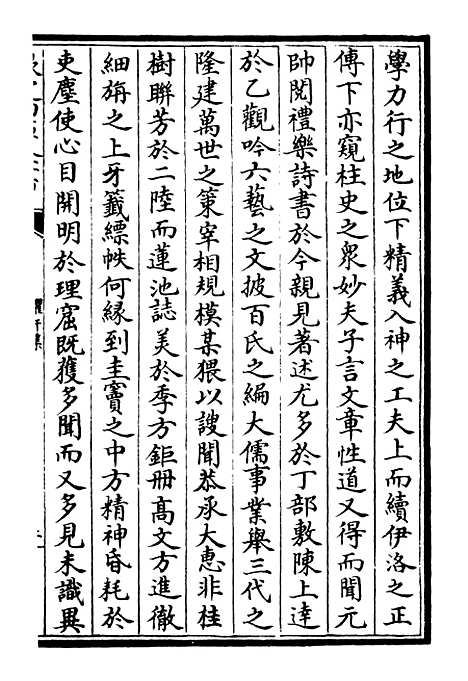 學力行之地位下精義入神之工夫上而續伊洛之正
傳下亦窺柱史之衆妙夫子言文章性道又得而聞元
帥閱禮樂詩書於今親見著述尤多於丁部敷陳上達
於乙觀吟六藝之文披百氏之編大儒事業舉三代之
隆建萬世之策宰相規模某猥以謏聞恭承大惠非桂
樹聯芳於二陸而蓮池誌美於季方鉅冊髙文方進徹
細旃之上牙籤縹帙何緣到圭竇之中方精神昏耗於
吏塵使心目開明於理窟既獲多聞而又多見未識異